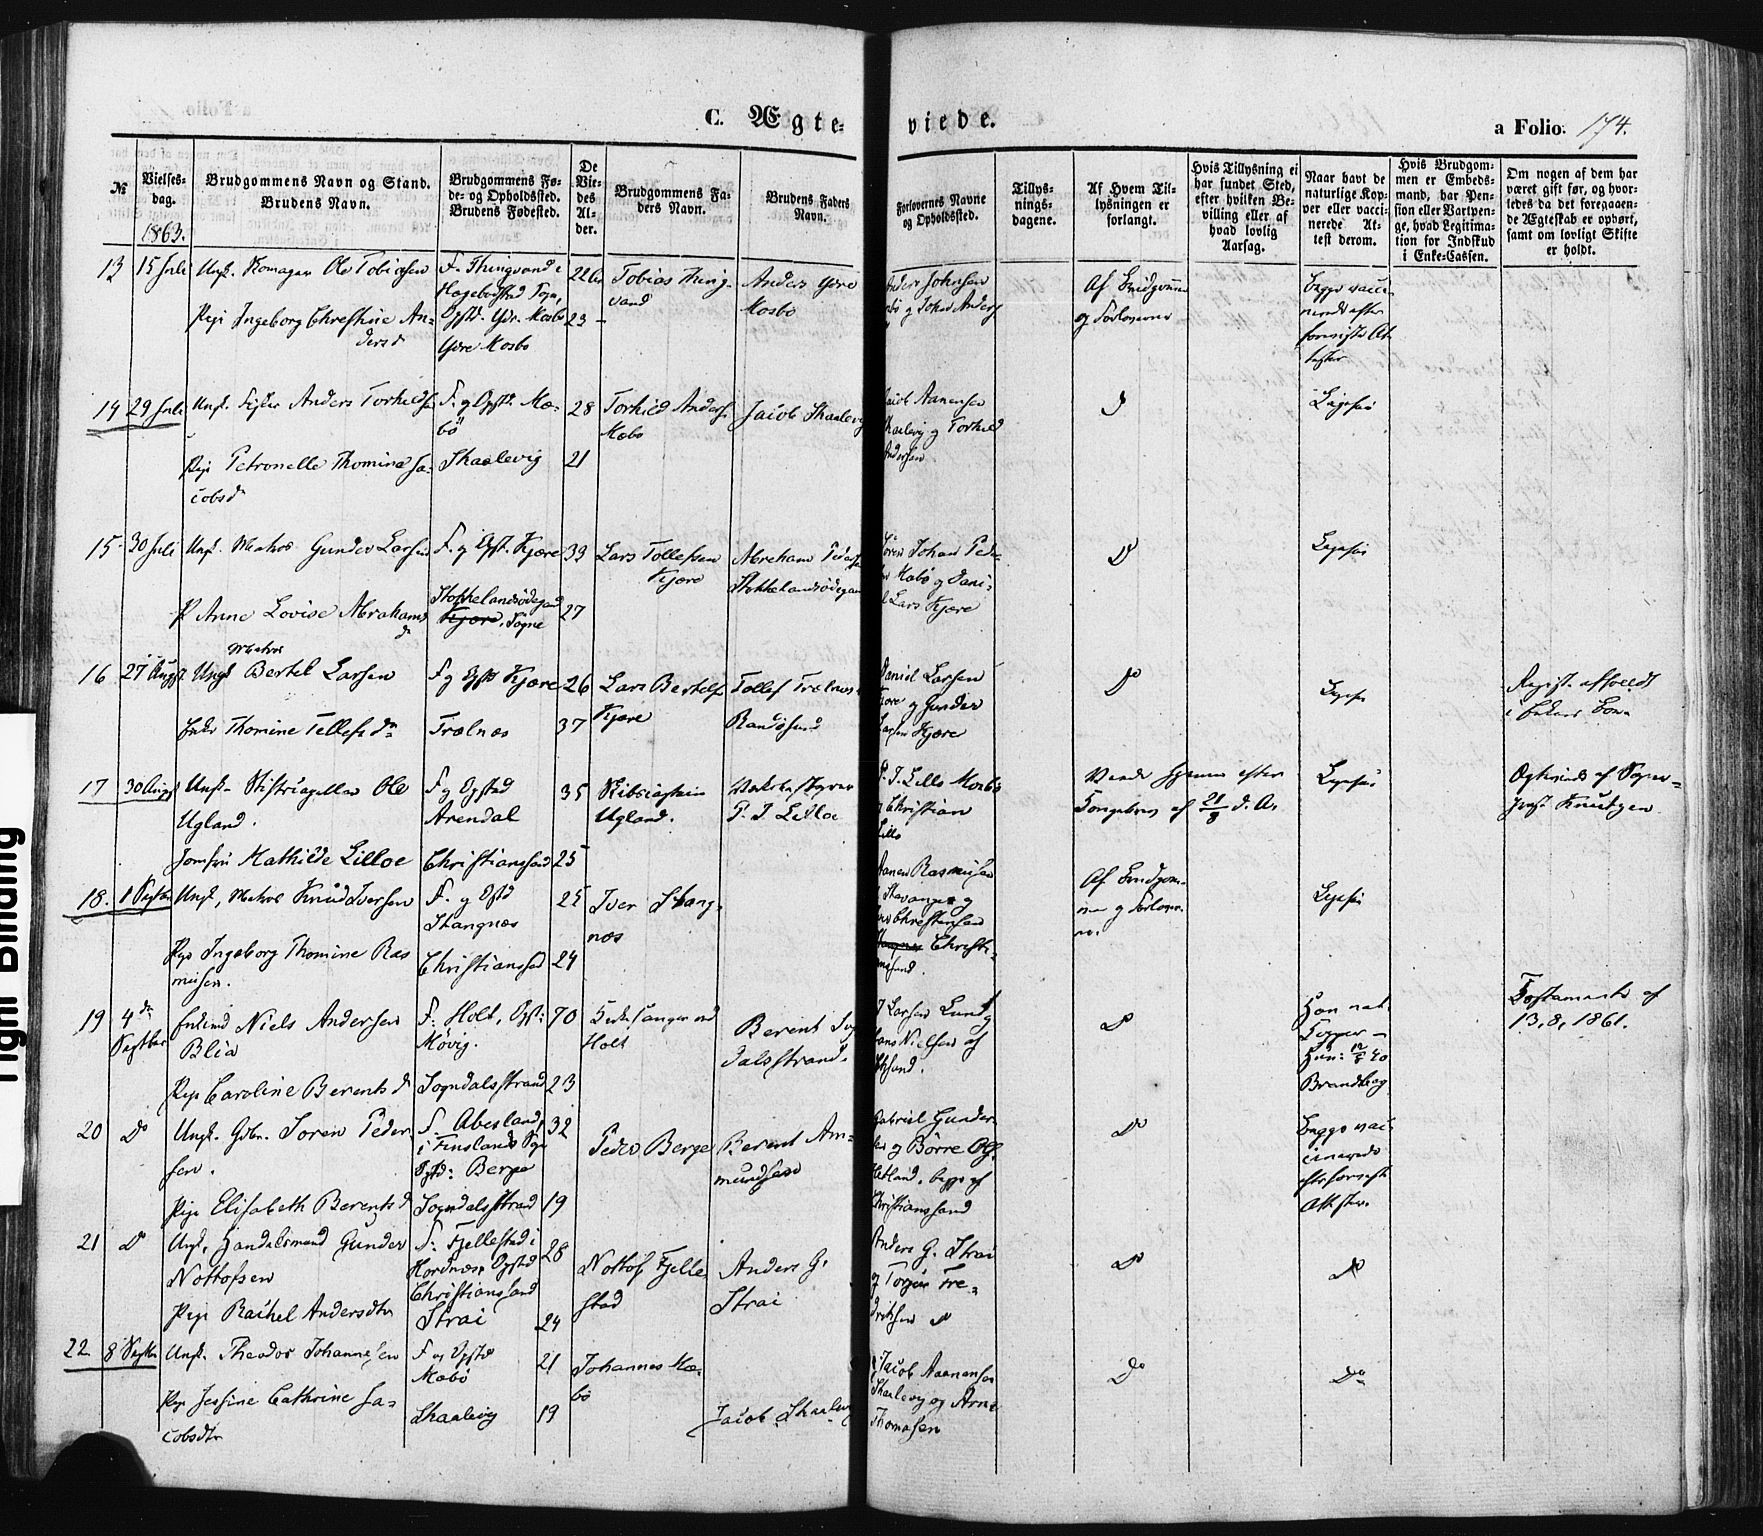 C. Ægteviede.
a Folio. 174.
№
Vielses-
dag.
Brudgommens Navn og Stand.
Brudens Navn.
Brudgommens Fø-
de- og Opholdssted.
Brudens Fødested.
De
Vie-
des
Al-
der.
Brudgommens Fa-
ders Navn.
Brudens Faders
Navn.
Forlovernes Navne
og Opholdssted.
Tillys-
nings-
dagene.
Af Hvem Til-
lysningen er
forlangt.
Hvis Tillysning ei
har fundet Sted,
efter hvilken Be-
villing eller af
hvad lovlig
Aarsag.
Naar havt de
naturlige Kop-
per eller vacci-
nerede At-
test derom.
Hvis Brudgom-
men er Embeds-
mand, har Pen-
sion eller Vartpen-
ge, hvad Legitima-
tion for Indskud
i Enke-Cassen.
Om nogen af dem har
været gift før, og hvor-
ledes da det foregaaen-
de Ægteskab er ophørt,
samt om lovligt Skifte
er holdt.
1863.
13 15 Juli Ungk. Ole Tobiasen
Pige Ingeborg Chrestine An-
dersd
F. Thingvand i
Hægebostad Sogn,
Opst. Ydr. Mosbø
Ydre Mosbø
23
Tobias Thing-
vand
Anders Ydre
Mosbø
Anders Johnsen
Af Brudgommen
og Forloverne
Begge vacci-
nerede efter
foreviste At-
tester
14 29 Juli Ungk. Anders Torkelds
Pige Petronelle Thomine Ja-
cobsd
F. og Opst. Mæ-
bø
Skaalevig
28
21
Torkild Anders
Mæbø
Jacob Skaalevig
Jacob Aanensen
Skaalevig og Torkild
Andersen
Do
Ligesaa
15 30 Juli Ungk. Matros Gunder Larsen
P Anne Lovise Abrahamsd
F. og Opst. Kjære
Stokkelandsødegaard
Kjære, Sogne
33
27
Lars Tollefsen
Kjære
Abraham Peders
Stokkelandsødegaard
Søren Johan Peder-
sen Mæbø og Dani-
el Lars Kjære
Do
Ligesaa
16 27 Augst Ungk Matros Bertel Larsen
Enke Thomine Tellefsd
F og Opst Kjære
Trælnæs
26
37
Lars Bertels
Kjære
Tollef Trælnes
Randøsund
Daniel Larsen
Kjære og Gunder
Larsen Kjære
Do
Ligesaa
17 30 Augst Ungk. Ole
Ugland.
Jomfru Mathilde Lilloe
F og Opsted
Arendal
Christianssand
35
25
Ugland.
P. J. Lilloe
P. J. Lillo Mosbø
og Christian
Lillo
21/8 d. A.
Ligesaa
Knudtzen
18. 1 Septbr Ungk, Matros Knud Iversen
Pige Ingeborg Thomine Ras
musen.
F. og Opst
Stangnæs
Christianssand
25
24
Iver Stang-
næs
Aanen Rasmusen
Stavanger og
Christensen
Christi-
anssand.
Af Brudgom-
men og Forlover-
ne.
Ligesaa
19 4de
Septbr
Enkemd Niels Andersen
Blia
Pige Caroline Berentsd
F. Holt, Opst:
Møvig.
Sogndalsstrand
70
23
Holt
Berent Sogn
dalsstrand.
J Larsen Lund og
Hans Nielsen af
Do
Han nat.
Kopper —
Hun: 12/5 40
Brandberg
Testamente af
13, 8, 1861.
20 Do Ungk. Gdbr. Søren Peder
sen.
Pige Elisabeth Berentsd
F. Abesland,
i Finslands Sogn
Opst: Berge
Sogndalsstrand
32
19
Peder Berge
Berent Am-
mundsen
Gabriel Gunder
sen og Børre Ols
Hetland, begge af
Christianssand
Do
Begge vac-
cinerede
efter foreviste
Attester.
21 Do Ungk. Handelsmand Gunder
Nottofsen
Pige Rachel Andersdtr
F: Fjellestad i
Hordnæs, Opsted
Christianssand
Strai
28
24
Nottof Fjelle
stad
Anders G.
Strai
Anders G. Strai
og Torjus Fre-
driksen Do
Do
Do
22 8 Septbr Ungk. Theodor Johannesen
Pige Jessine Cathrine Ja-
cobsdtr
F og Opst
Mæbø
Skaalevig
21
19
Johannes Mæ-
bø
Jacob Skaalevig
Jacob Aanensen
Skaalevig og Arne
Thomasen
Do
Do
Tight Binding